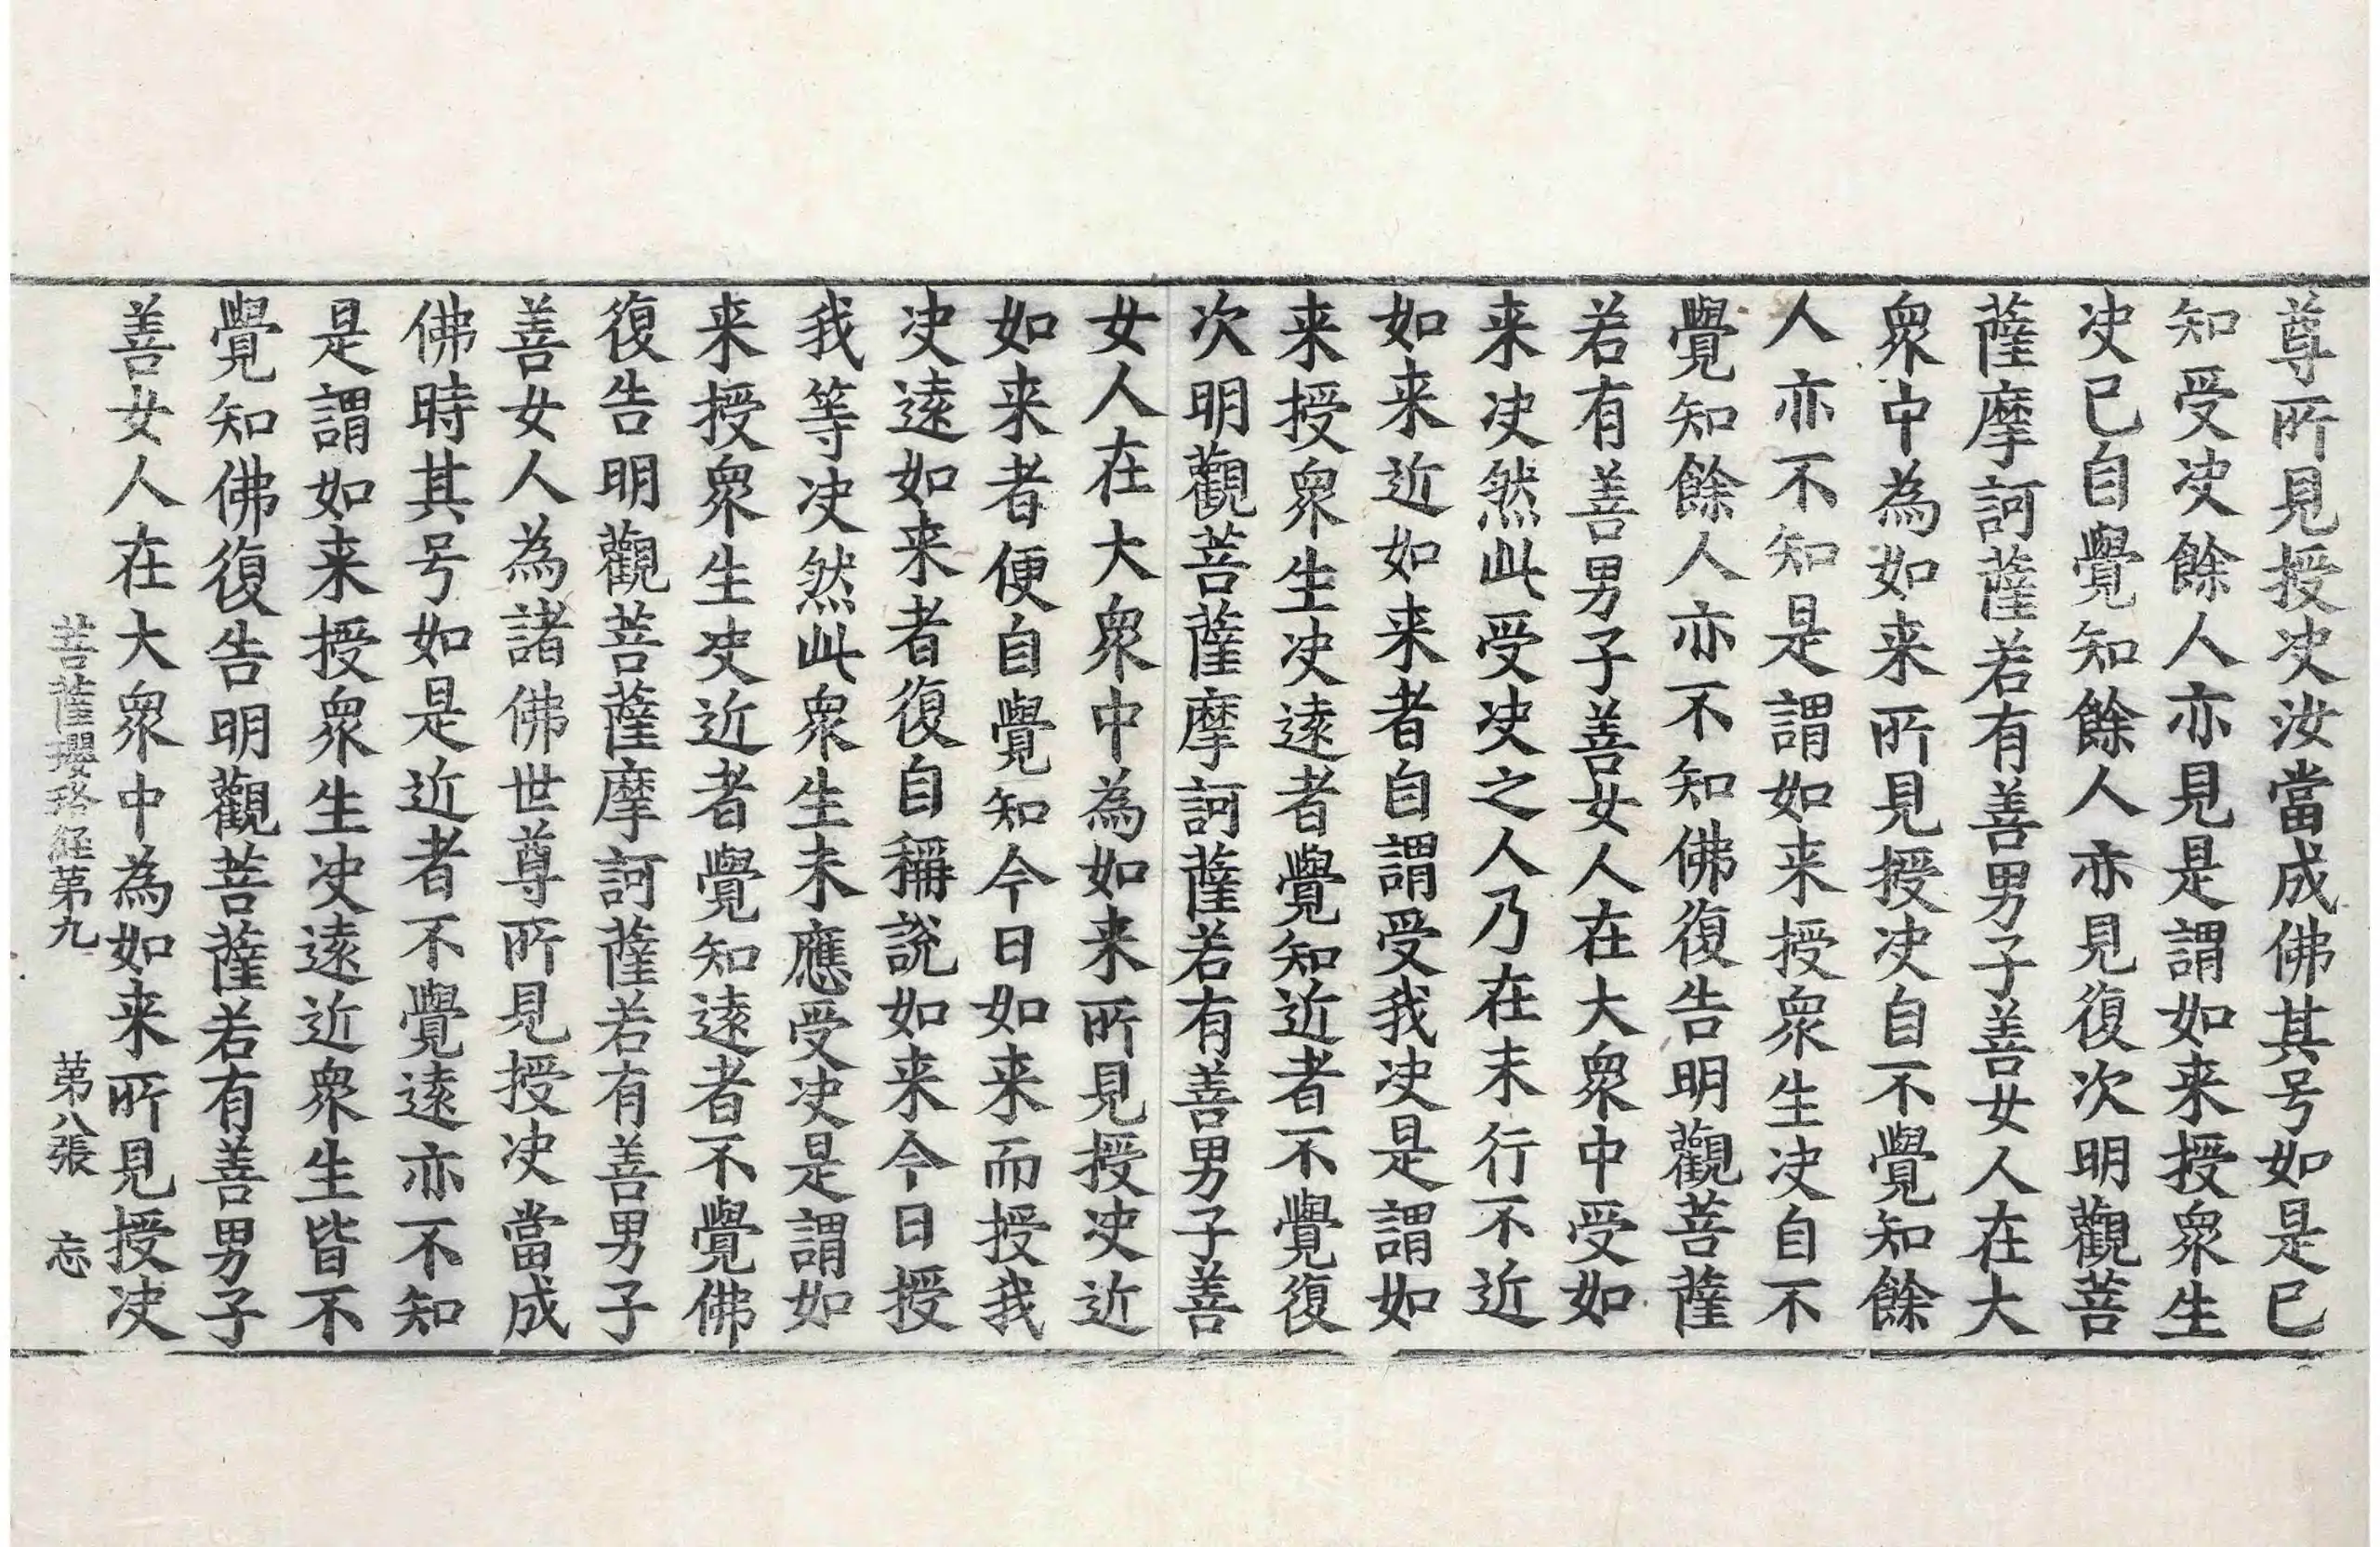 尊所見授决汝當成佛其号如是已
知受决餘人亦見是謂如来授衆生
决已自覺知餘人亦見復次明觀菩
薩摩訶薩若有善男子善女人在大
衆中為如来所見授决自不覺知餘
人亦不知是謂如来授衆生决自不
覺知餘人亦不知佛復告明觀菩薩
若有善男子善女人在大衆中受如
来决然此受决之人乃在末行不近
如来近如来者自謂受我决是謂如
来授衆生决遠者覺知近者不覺復
次明觀菩薩摩訶薩若有善男子善
女人在大衆中為如来所見授决近
如来者便自覺知今日如来而授我
决遠如来者復自稱説如来今日授
我等决然此衆生未應受决是謂如
来授衆生决近者覺知遠者不覺佛
復告明觀菩薩摩訶薩若有善男子
善女人為諸佛世尊所見授决當成
佛時其号如是近者不覺遠亦不知
是謂如来授衆生决遠近衆生皆不
覺知佛復告明觀菩薩若有善男子
善女人在大衆中為如来所見授决
菩薩瓔珞経第九 第八張 忘